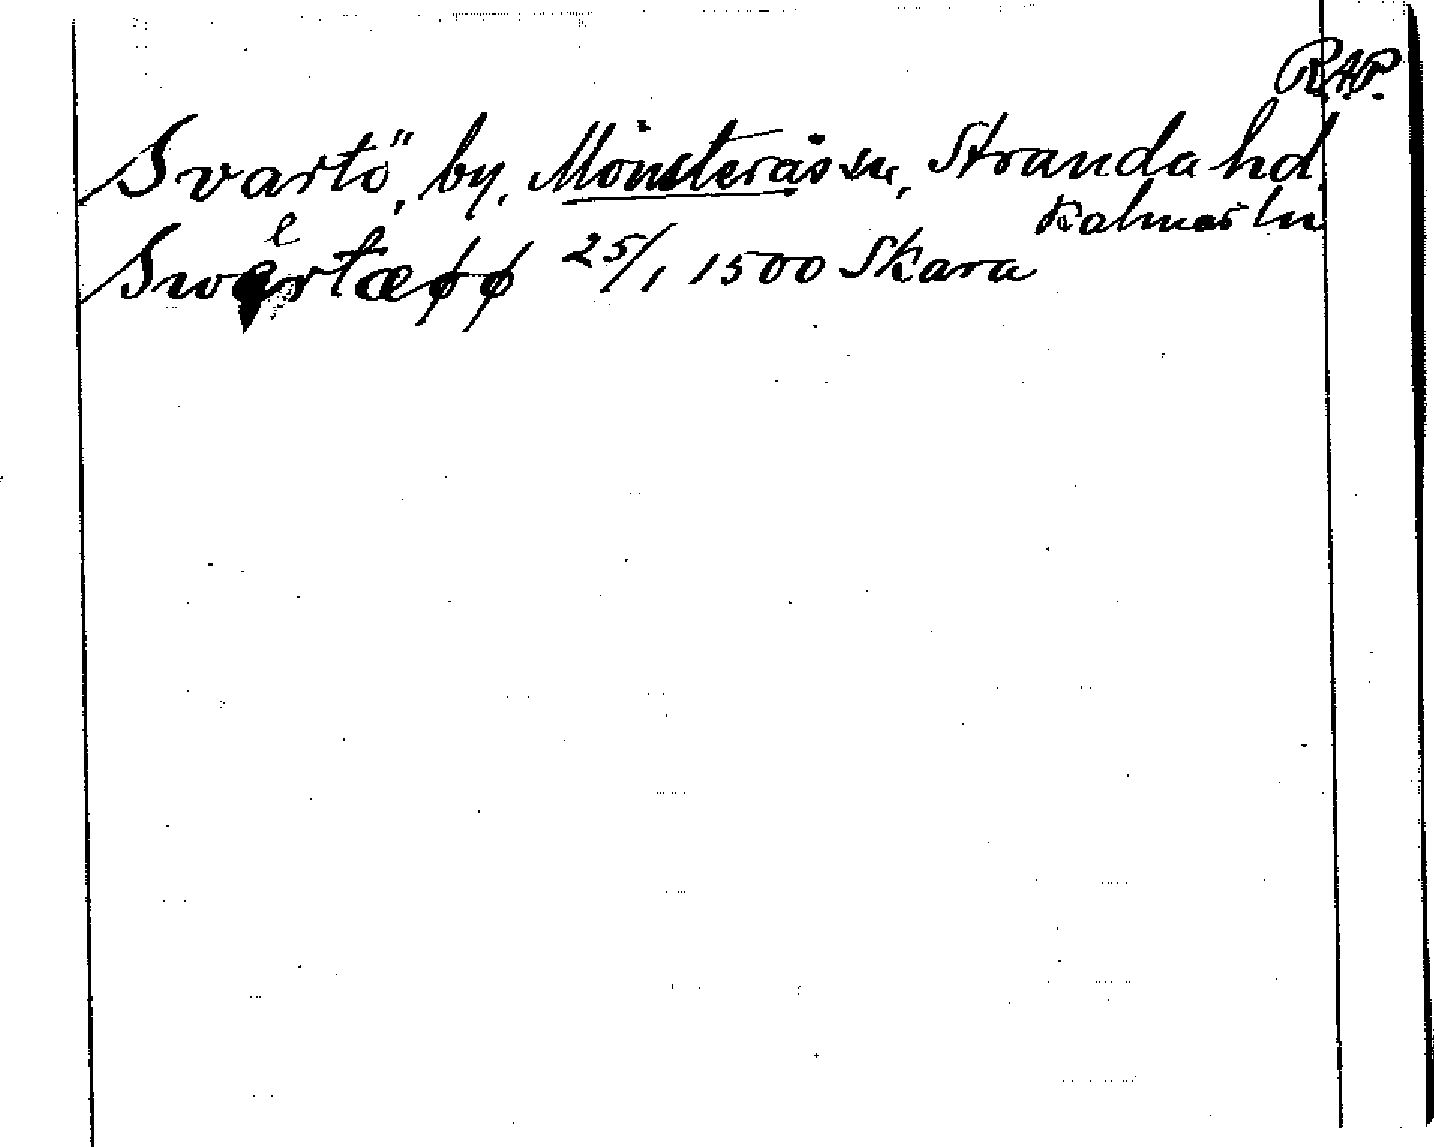 RAP.
Svartö, by, Mönsterås sn, Stranda hd,
Kalmar ln
Swertæøø 25/1 1500 Skara